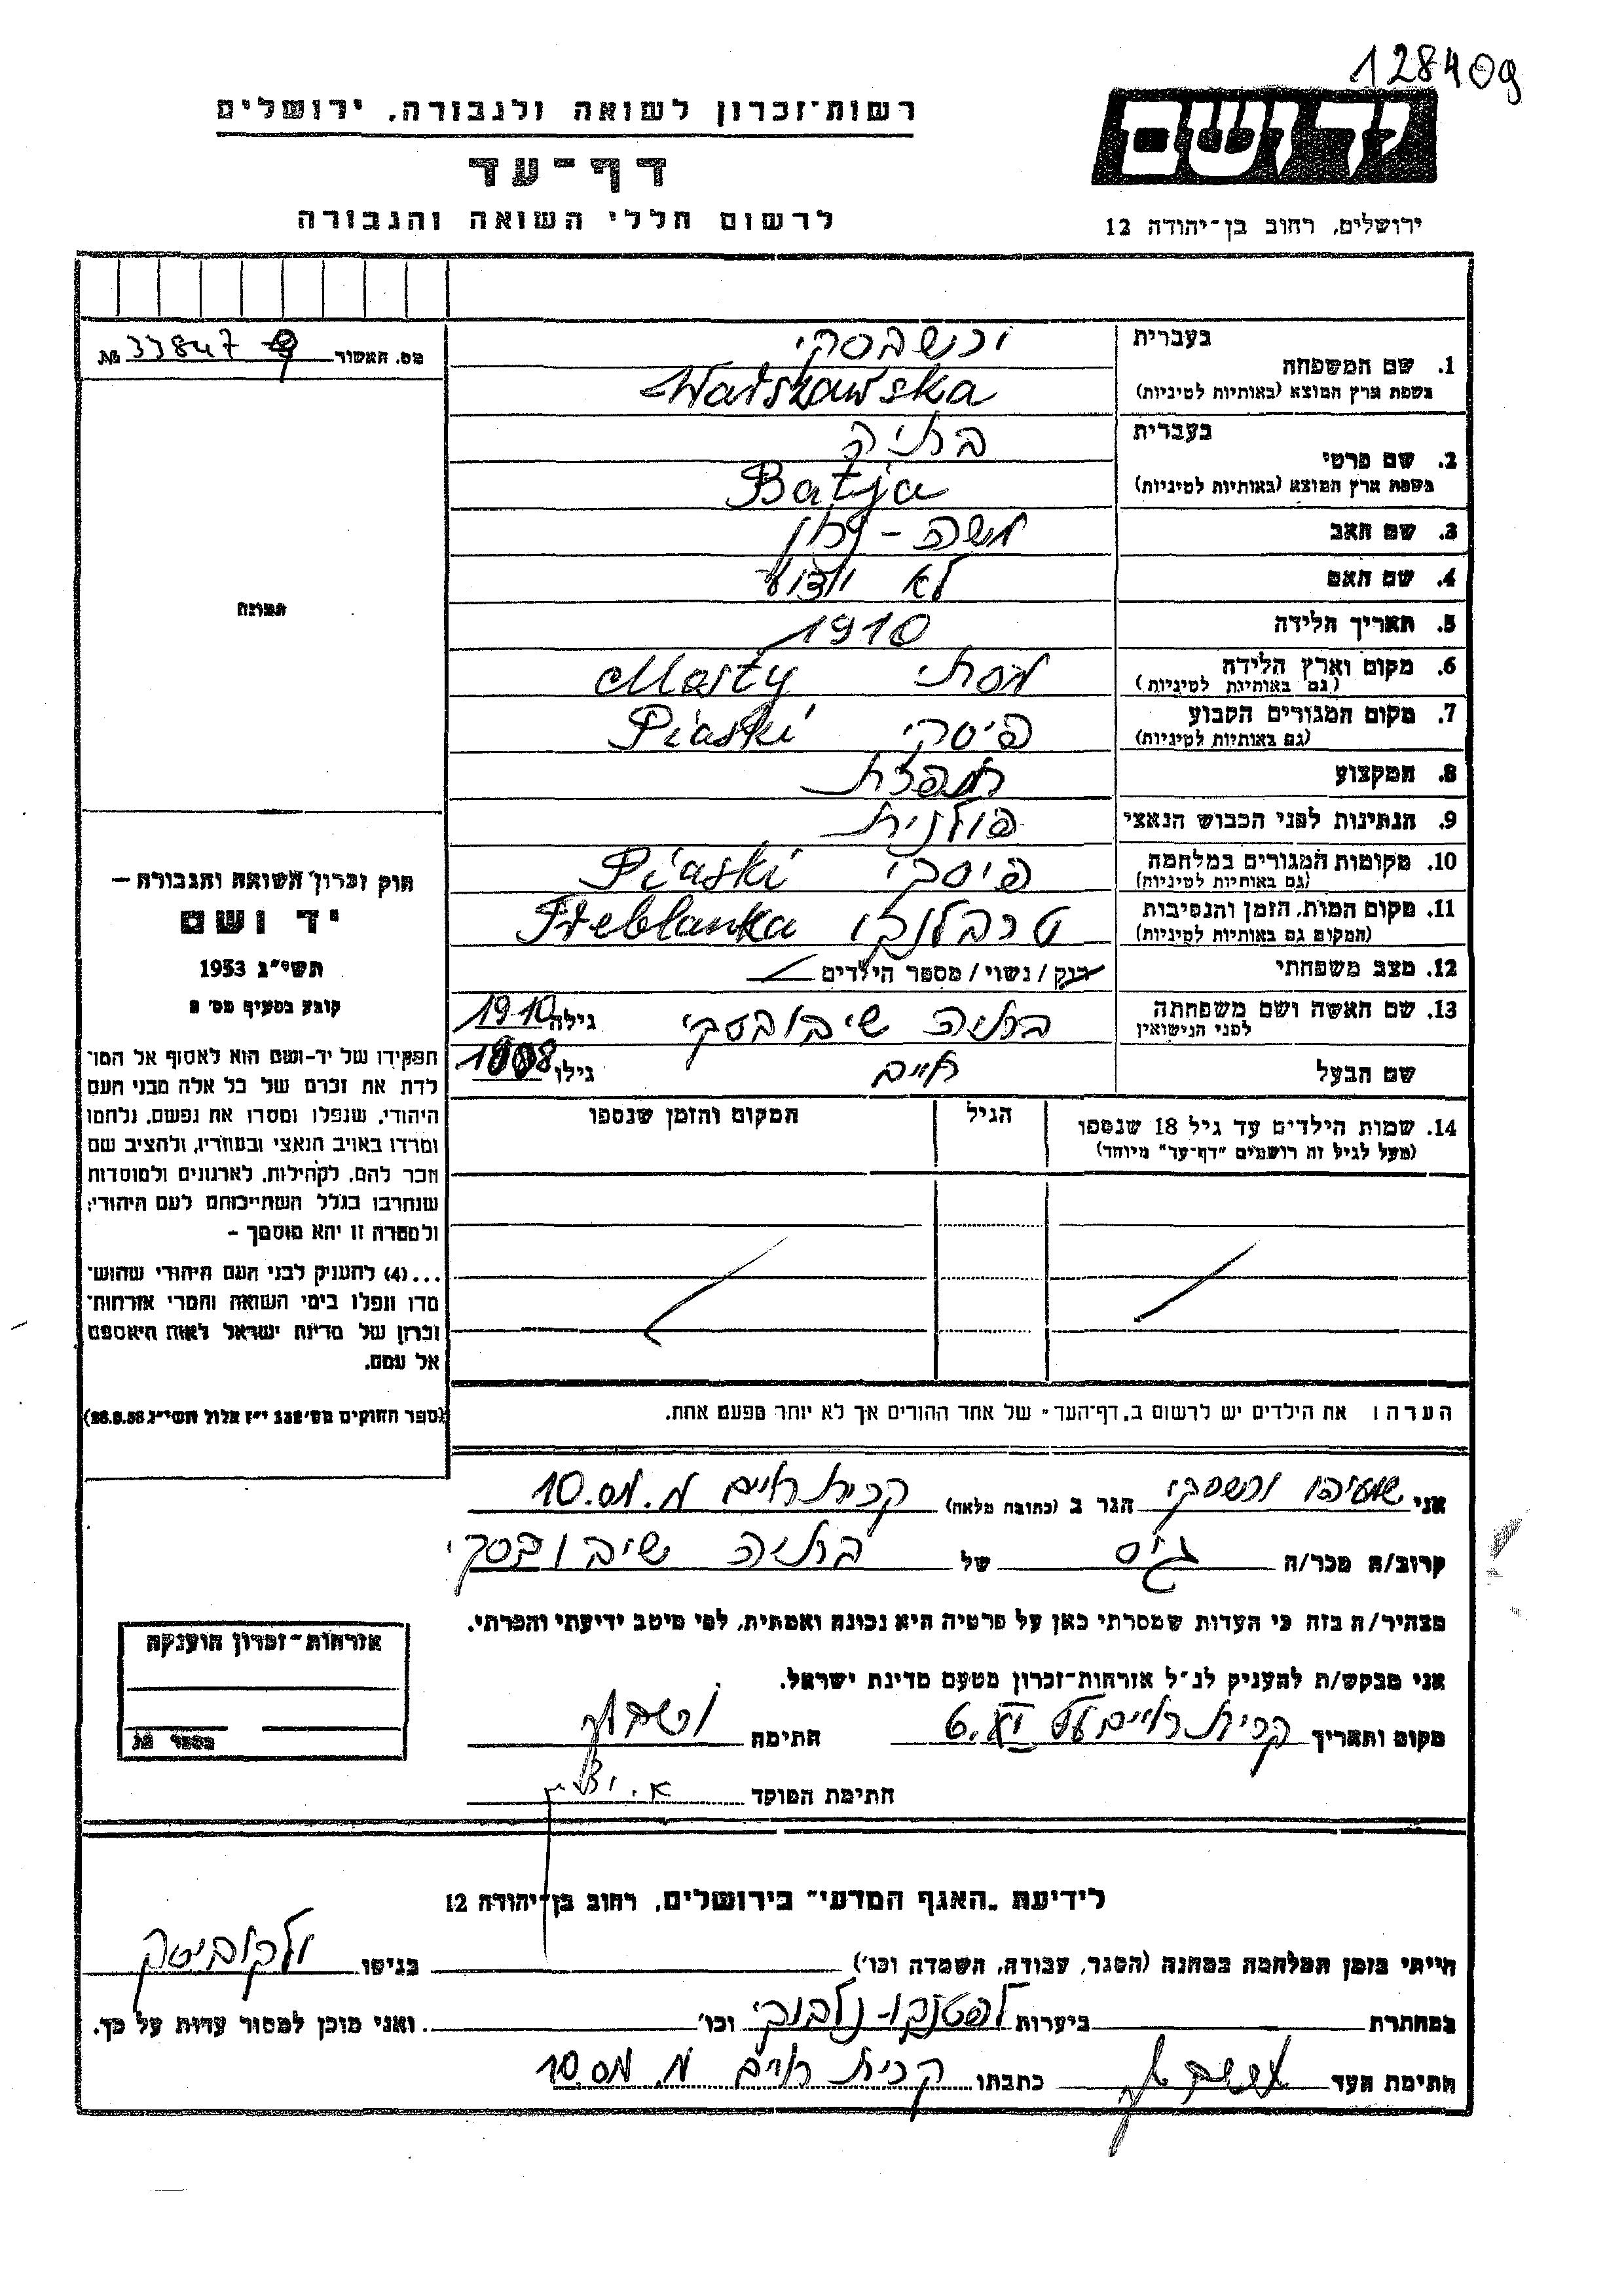 128409
רשות-זכרון לשואה ולגבורה, ירושלים
יד ושם
דף-עד
לרשום חללי השואה והגבורה
ירושלים, רחוב בן-יהודה 12
מס. האשור 33847 №
תמונה
חוק זכרון השואה והגבורה —
יד ושם
תשי"ג 1953
קובע בסעיף מס' 2
תפקידו של יד-ושם הוא לאסוף אל המו־
לדת את זכרם של כל אלה מבני העם
היהודי, שנפלו ומסרו את נפשם, נלחמו
ומרדו באויב הנאצי ובעוזריו, ולהציב שם
וזכר להם, לקהילות, לארגונים ולמוסדות
שנחרבו בגלל השתייכותם לעם היהודי;
ולמטרה זו יהא מוסמך -
...(4) להעניק לבני העם היהודי שהוש־
מדו ונפלו בימי השואה והמרי אזרחות־
זכרון של מדינת ישראל לאות היאספם
אל עמם.
(ספר החוקים מס' 132 י"ז אלול תשי"ג 28.8.53)
1. שם המשפחה
בעברית ורשבסקי
בשפת ארץ המוצא (באותיות לטיניות) Warszawska
2. שם פרטי
בעברית בתיה
בשפת ארץ המוצא (באותיות לטיניות) Batja
3. שם האב משה -
4. שם האם לא ידוע
5. תאריך הלידה 1910
6. מקום וארץ הלידה מסתי Masty
(גם באותיות לטיניות)
7. מקום המגורים הקבוע פיסקי Piaski
(גם באותיות לטיניות)
8. המקצוע תופרת
9. הנתינות לפני הכבוש הנאצי פולנית
10. מקומות המגורים במלחמה פיסקי Piaski
(גם באותיות לטיניות)
11. מקום המות, הזמן והנסיבות טרבלנקי Treblanka
(המקום גם באותיות לטיניות)
12. מצב משפחתי רוק / נשוי / מספר הילדים
13. שם האשה ושם משפחתה בתיה שיבובסקי גילה 1910
לפני הנישואין
שם הבעל חיים גילו 1908
14. שמות הילדים עד גיל 18 שנספו הגיל המקום והזמן שנספו
(מעל לגיל זה רושמים "דף-עד" מיוחד)
הערה: את הילדים יש לרשום ב"דף-העד" של אחד ההורים אך לא יותר מפעם אחת.
אני ורשבסקי הגר ב (כתובת מלאה) קרית חיים מ. מס. 10
קרוב/ה מכר/ה גיס של בתיה שיבובסקי
מצהיר/ה בזה כי העדות שמסרתי כאן על פרטיה היא נכונה ואמתית, לפי מיטב ידיעתי והכרתי.
אני מבקש/ת להעניק לנ"ל אזרחות-זכרון מטעם מדינת ישראל.
מקום ותאריך קרית חיים חתימה
חתימת הפוקד
אזרחות-זכרון הוענקה
מספר מג
לידיעת "האגף המדעי" בירושלים, רחוב בן-יהודה 12
הייתי בזמן המלחמה במחנה (הסגר, עבודה, השמדה וכו') בגיטו ולקוביסק
במחתרת ביערות וכו' ואני מוכן למסור עדות על כך.
חתימת העד כתבתו קרית חיים מ. מס. 10